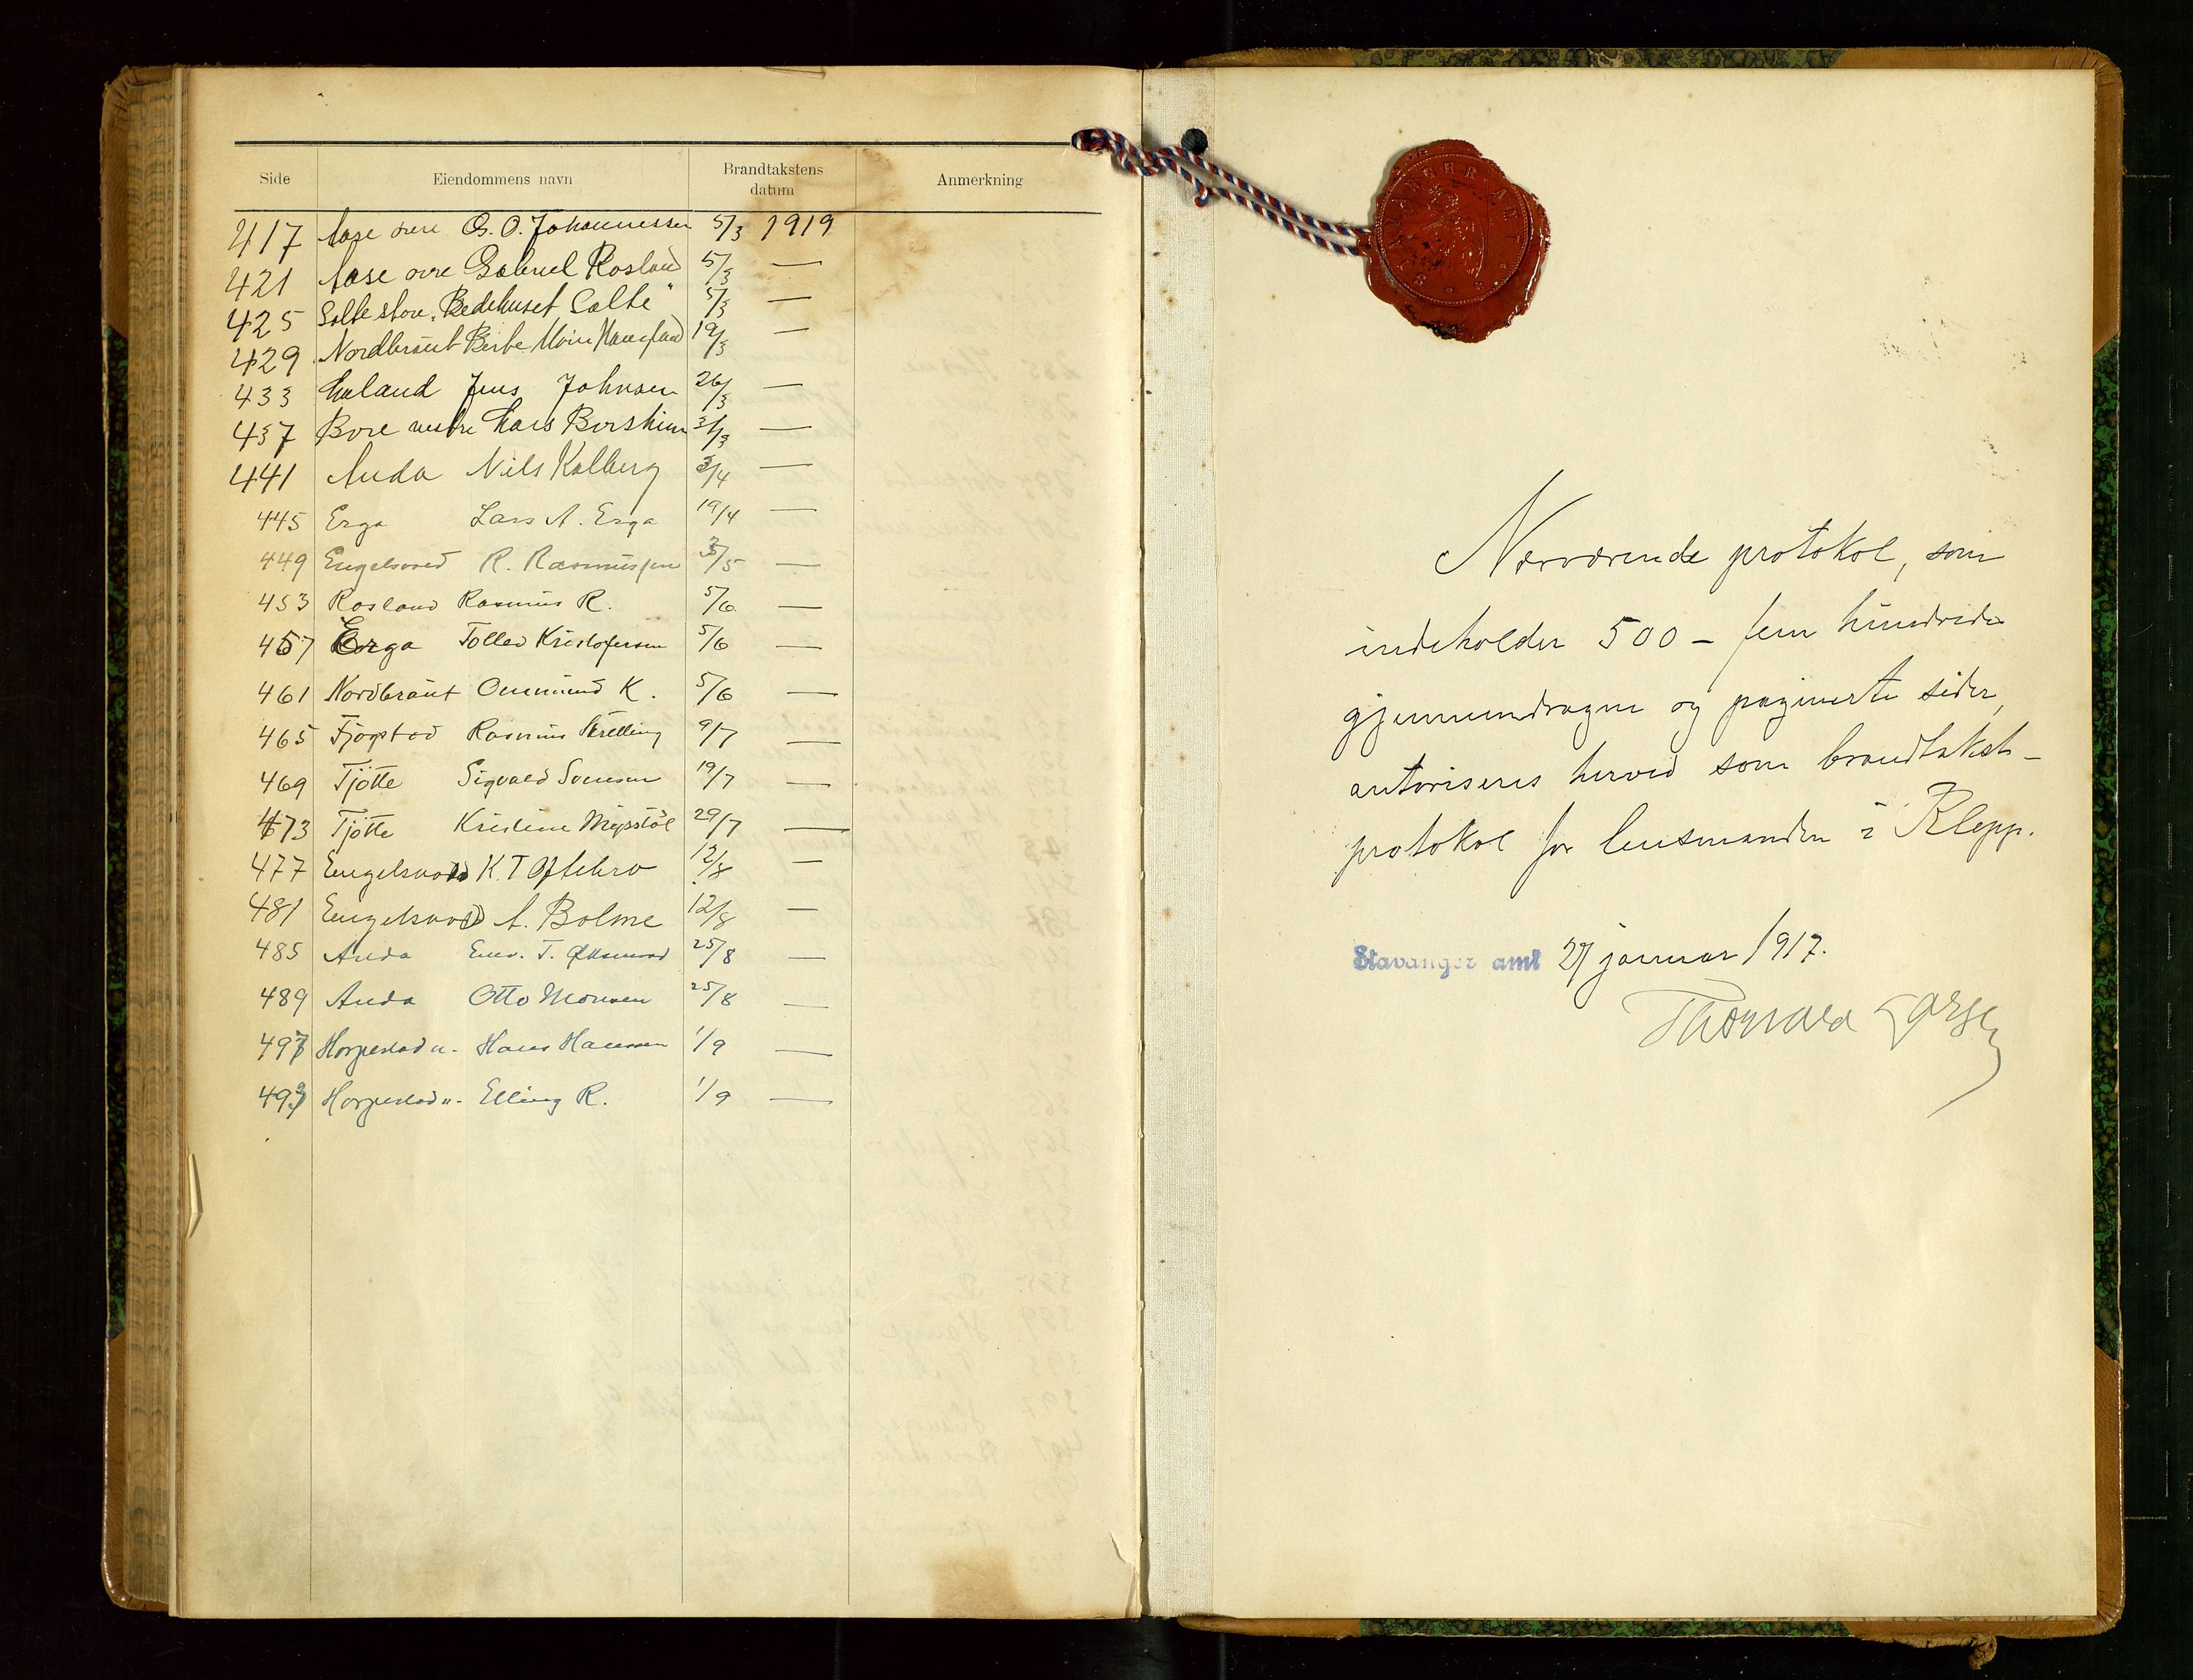 Side Eiendommens navn Brandtakstens datum Anmerkning
417 Aase øvre G. O. Johannessen 5/3 1919
421 Aase øvre Gabriel Rosland 5/3 —
425 Salte store. Bedehuset Salte" 5/3 —
429 Nordbraut Berte 19/3 —
433 Haland Jens Johnsen 26/3 —
437 Bore vestre Lars Borsheim 31/3 —
441 Anda Nils Kalberg 3/4 —
445 Erga Lars A. Erga 19/4 —
449 Engelsvold R. Rasmussen 3/5 —
453 Rosland Rasmus R. 5/6 —
457 Erga Tollev Kristofersen 5/6 —
461 Nordbraut Ommund K. 5/6 —
465 Fjogstad Rasmus 9/7 —
469 Tjøtte Sigvald 19/7 —
473 Tjøtte Kristine 29/7 —
477 Engelsvold K. T. Oftebro 12/8 —
481 Engelsvold A. Bolme 12/8 —
485 Anda T. 25/8 —
489 Anda Otto Monsen 25/8 —
497 Horpestad n. Hans Hanssen 1/9 —
Horpestad n. Elling R. 1/9 —
STAVANGER AMT
Nærværende protokol, som
indeholder 500 – fem hundrede
gjennemdragne og paginerte sider,
autoriseres herved som brandtakst-
protokol for lensmanden i Klepp.
Stavanger amt 27 januar 1917.
Thorvald Larsen